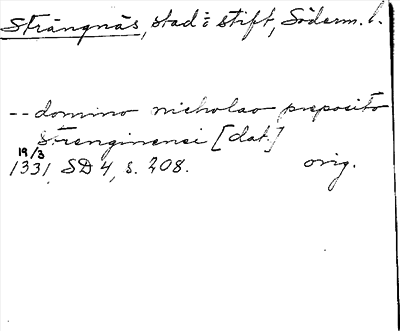 Strängnäs, stad o. stift, Söderm. l.
-- domino nicholao preposito
Strenginensi [dat.]
19/3
1331 SD 4, s. 208. orig.